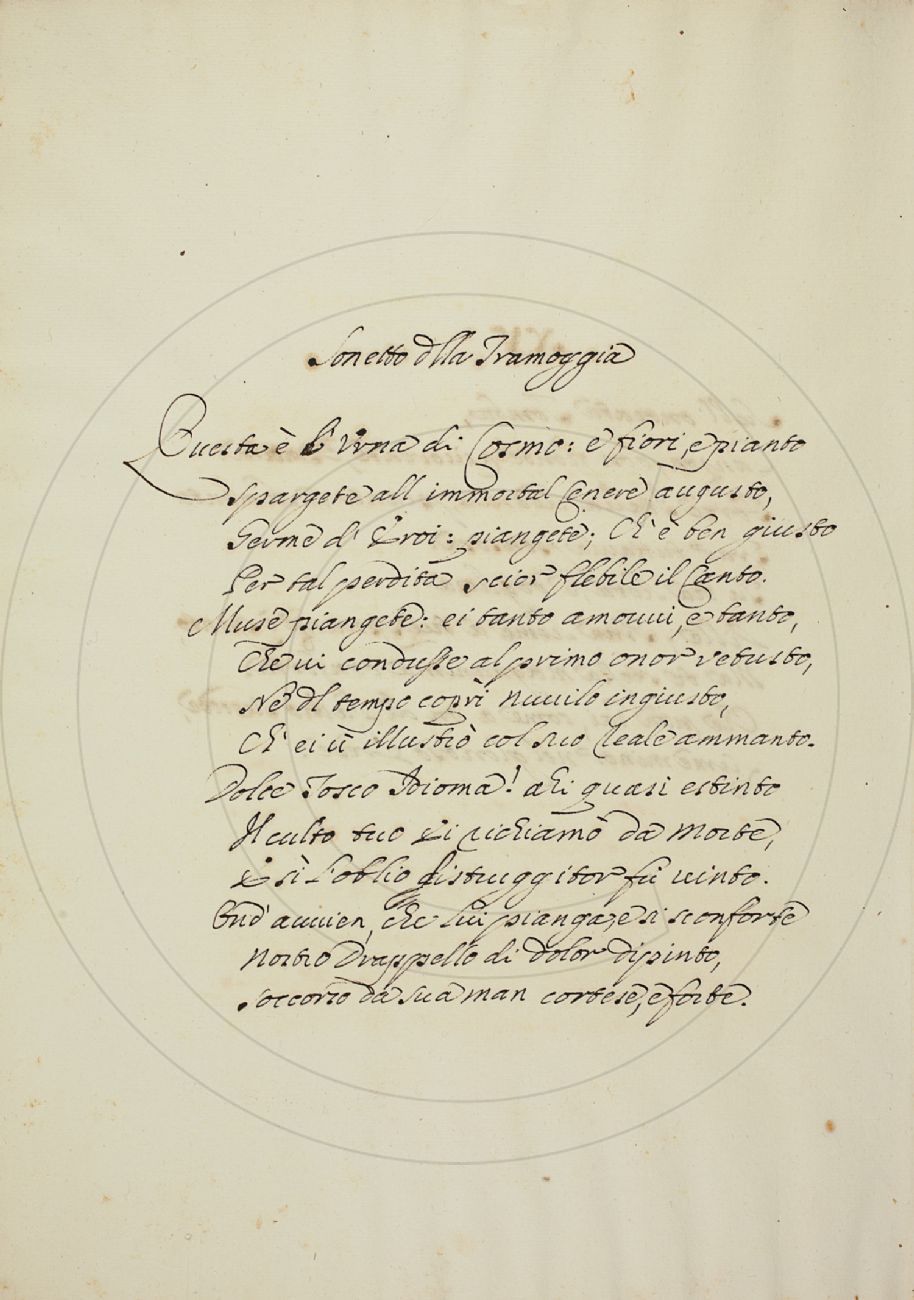 Sonetto dlla Tramoggia
Questa è l'Vrna di Cosmo: e fiori, e pianto
Spargete all immortal Cenere augusto,
Germe d' Eroi: piangete; Ch' è ben giusto
Per tal perdita scior flebile il Canto.
Muse piangete: ei tanto amouui, e tanto,
Che ui condusse al primo onor vetusto,
Nè dl tempo coprì nuuilo ingiusto,
Ch' ei ui illustrò col suo Reale ammanto.
Dolce Tosco Idioma! ahi quasi estinto
Il culto tuo Ei richiamò da Morte,
E sì l'oblio distruggitor fù uinto.
Ond' auuien, che lui pianga, e si sconforte
Nostro Drappello di dolor dipinto,
Soccorso da sua man cortese, e forte.